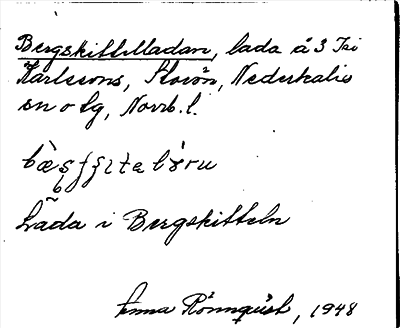 Bergskittelladan, lada å 3 Isi
Karlssons, Storön, Nederkalix
sn o lg, Norrb. l.
Lada i Bergskitteln
Anna Rönnqvist, 1948